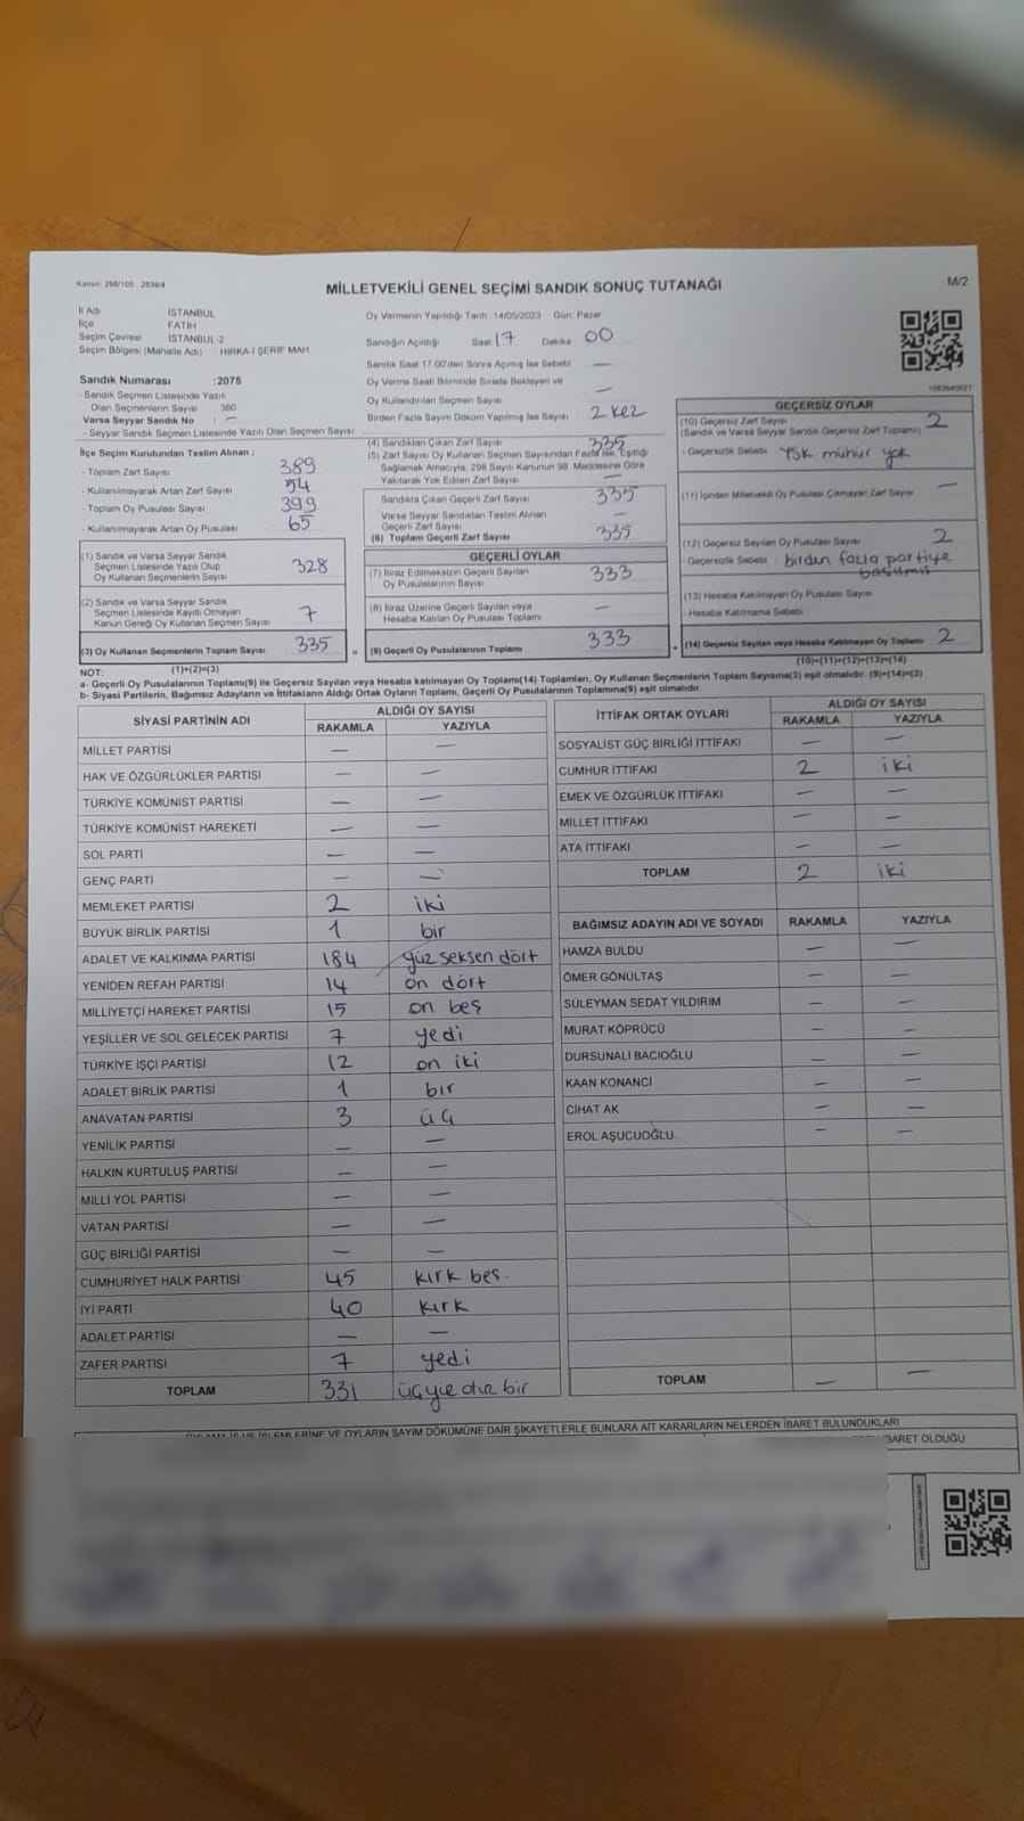 Kanun: 298/105, 2839/4
MİLLETVEKİLİ GENEL SEÇİMİ SANDIK SONUÇ TUTANAĞI
M/2
İl Adı İSTANBUL
İlçe FATİH
Seçim Çevresi İSTANBUL-2
Seçim Bölgesi (Mahalle Adı) HIRKA-İ ŞERİF MAH.
Oy Vermenin Yapıldığı Tarih: 14/05/2023 Gün: Pazar
Sandığın Açıldığı Saat 17 Dakika 00
Sandık Saat 17.00'den Sonra Açılmış İse Sebebi —
Oy Verme Saati Bitiminde Sırada Bekleyen ve
Oy Kullandırılan Seçmen Sayısı —
Birden Fazla Sayım Döküm Yapılmış İse Sayısı 2 kez
Sandık Numarası :2075
- Sandık Seçmen Listesinde Yazılı
Olan Seçmenlerin Sayısı 380
Varsa Seyyar Sandık No : —
- Seyyar Sandık Seçmen Listesinde Yazılı Olan Seçmen Sayısı:
İlçe Seçim Kurulundan Teslim Alınan :
- Toplam Zarf Sayısı 389
- Kullanılmayarak Artan Zarf Sayısı 54
- Toplam Oy Pusulası Sayısı 399
- Kullanılmayarak Artan Oy Pusulası 65
(1) Sandık ve Varsa Seyyar Sandık
Seçmen Listesinde Yazılı Olup
Oy Kullanan Seçmenlerin Sayısı 328
(2) Sandık ve Varsa Seyyar Sandık
Seçmen Listesinde Kayıtlı Olmayan
Kanun Gereği Oy Kullanan Seçmen Sayısı 7
(3) Oy Kullanan Seçmenlerin Toplam Sayısı 335
(1)+(2)=(3)
(4) Sandıktan Çıkan Zarf Sayısı 335
(5) Zarf Sayısı Oy Kullanan Seçmen Sayısından Fazla ise, Eşitliği
Sağlamak Amacıyla, 298 Sayılı Kanunun 98. Maddesine Göre
Yakılarak Yok Edilen Zarf Sayısı —
Sandıkta Çıkan Geçerli Zarf Sayısı 335
Varsa Seyyar Sandıktan Teslim Alınan
Geçerli Zarf Sayısı —
(6) Toplam Geçerli Zarf Sayısı 335
GEÇERLİ OYLAR
(7) İtiraz Edilmeksizin Geçerli Sayılan
Oy Pusulalarının Sayısı 333
(8) İtiraz Üzerine Geçerli Sayılan veya
Hesaba Katılan Oy Pusulası Toplamı —
(9) Geçerli Oy Pusulalarının Toplamı 333
GEÇERSİZ OYLAR
(10) Geçersiz Zarf Sayısı 2
(Sandık ve Varsa Seyyar Sandık Geçersiz Zarf Toplamı)
- Geçersizlik Sebebi: YSK mühür yok
(11) İçinden Milletvekili Oy Pusulası Çıkmayan Zarf Sayısı —
(12) Geçersiz Sayılan Oy Pusulası Sayısı 2
Geçersizlik Sebebi : birden fazla partiye
basılmış
(13) Hesaba Katılmayan Oy Pusulası Sayısı
- Hesaba Katılmama Sebebi :
(14) Geçersiz Sayılan veya Hesaba Katılmayan Oy Toplamı 2
(10)+(11)+(12)+(13)=(14)
NOT:
a- Geçerli Oy Pusulalarının Toplamı(9) ile Geçersiz Sayılan veya Hesaba katılmayan Oy Toplamı(14) Toplamları, Oy Kullanan Seçmenlerin Toplam Sayısına(3) eşit olmalıdır. (9)+(14)=(3)
b- Siyasi Partilerin, Bağımsız Adayların ve İttifakların Aldığı Ortak Oyların Toplamı, Geçerli Oy Pusulalarının Toplamına(9) eşit olmalıdır.
SİYASİ PARTİNİN ADI ALDIĞI OY SAYISI
RAKAMLA YAZIYLA
MİLLET PARTİSİ — —
HAK VE ÖZGÜRLÜKLER PARTİSİ — —
TÜRKİYE KOMÜNİST PARTİSİ — —
TÜRKİYE KOMÜNİST HAREKETİ — —
SOL PARTİ — —
GENÇ PARTİ — —
MEMLEKET PARTİSİ 2 iki
BÜYÜK BİRLİK PARTİSİ 1 bir
ADALET VE KALKINMA PARTİSİ 184 yüz seksen dört
YENİDEN REFAH PARTİSİ 14 on dört
MİLLİYETÇİ HAREKET PARTİSİ 15 on beş
YEŞİLLER VE SOL GELECEK PARTİSİ 7 yedi
TÜRKİYE İŞÇİ PARTİSİ 12 on iki
ADALET BİRLİK PARTİSİ 1 bir
ANAVATAN PARTİSİ 3 üç
YENİLİK PARTİSİ — —
HALKIN KURTULUŞ PARTİSİ — —
MİLLİ YOL PARTİSİ — —
VATAN PARTİSİ — —
GÜÇ BİRLİĞİ PARTİSİ — —
CUMHURİYET HALK PARTİSİ 45 kırk beş
İYİ PARTİ 40 kırk
ADALET PARTİSİ — —
ZAFER PARTİSİ 7 yedi
TOPLAM 331 üçyüz otuz bir
İTTİFAK ORTAK OYLARI ALDIĞI OY SAYISI
RAKAMLA YAZIYLA
SOSYALİST GÜÇ BİRLİĞİ İTTİFAKI — —
CUMHUR İTTİFAKI 2 iki
EMEK VE ÖZGÜRLÜK İTTİFAKI — —
MİLLET İTTİFAKI — —
ATA İTTİFAKI — —
TOPLAM 2 iki
BAĞIMSIZ ADAYIN ADI VE SOYADI RAKAMLA YAZIYLA
HAMZA BULDU — —
ÖMER GÖNÜLTAŞ — —
SÜLEYMAN SEDAT YILDIRIM — —
MURAT KÖPRÜCÜ — —
DURSUNALİ BACIOĞLU — —
KAAN KONANCI — —
CİHAT AK — —
EROL AŞUCUOĞLU — —
TOPLAM — —
VE OYLARIN SAYIM DÖKÜMÜNE DAİR ŞİKAYETLERLE BUNLARA AİT KARARLARIN NELERDEN İBARET BULUNDUKLARI
İBARET OLDUĞU